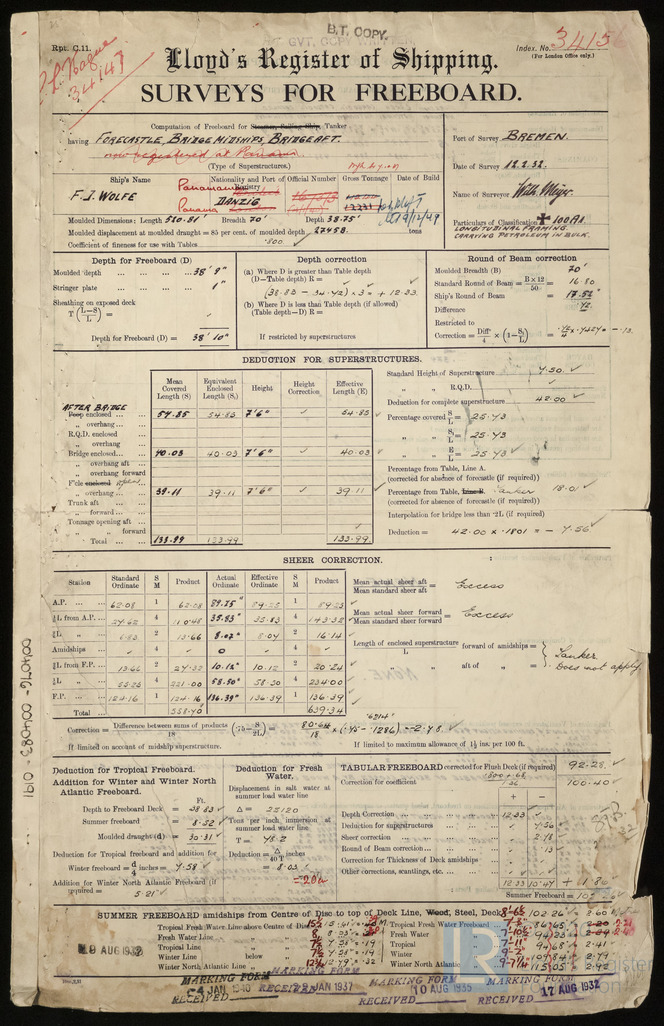 B.T. COPY.
Rpt. C.11.
Index. No. 3415
(For London Office only.)
34143
Lloyd's Register of Shipping.
SURVEYS FOR FREEBOARD.
Computation of Freeboard for Steamer, Sailing Ship, Tanker
having FORECASTLE, BRIDGE MIDSHIPS, BRIDGE AFT.
now registered at Panama.
(Type of Superstructures.)
Port of Survey BREMEN.
Date of Survey 12.2.32.
Name of Surveyor
Particulars of Classification ✠ 100 A1.
LONGITUDINAL FRAMING.
CARRYING PETROLEUM IN BULK.
Ship's Name
Nationality and Port of Registry
Official Number
Gross Tonnage
Date of Build
F. J. WOLFE
Panamanian
Panama
DANZIG
Moulded Dimensions: Length 520.81' Breadth 70' Depth 38.75'
Moulded displacement at moulded draught = 85 per cent. of moulded depth 27458 tons
Coefficient of fineness for use with Tables .800
Depth for Freeboard (D)
Moulded depth ... 38' 9"
Stringer plate ... 1"
Sheathing on exposed deck
T (L−S / L) =
Depth for Freeboard (D) = 38' 10"
Depth correction
(a) Where D is greater than Table depth
(D−Table depth) R =
(38.83 − 34.72) × 3 = + 12.33
(b) Where D is less than Table depth (if allowed)
(Table depth−D) R =
If restricted by superstructures
Round of Beam correction
Moulded Breadth (B) 70'
Standard Round of Beam = B×12 / 50 = 16.80
Ship's Round of Beam = 17.52"
Difference .72
Restricted to
Correction = Diff / 4 × (1−S₁/L) = .72/4 × .7457 = −.13
DEDUCTION FOR SUPERSTRUCTURES.
Mean Covered Length (S)
Equivalent Enclosed Length (S₁)
Height
Height Correction
Effective Length (E)
AFTER BRIDGE
Poop enclosed ... 54.85 54.85 7'6" 54.85
„ overhang ...
R.Q.D. enclosed
„ overhang
Bridge enclosed ... 40.03 40.03 7'6" 40.03
„ overhang aft ...
„ overhang forward
F'cle enclosed open ... 39.11 39.11 7'6" 39.11
„ overhang ...
Trunk aft ...
„ forward ...
Tonnage opening aft ...
„ „ forward
Total ... 133.99 133.99 133.99
Standard Height of Superstructure 7.50
„ „ R.Q.D.
Deduction for complete superstructure 42.00
Percentage covered S/L = 25.73
„ „ S₁/L = 25.73
„ „ E/L = 25.73
Percentage from Table, Line A.
(corrected for absence of forecastle (if required))
Percentage from Table, Line B. Tanker 18.01
(corrected for absence of forecastle (if required))
Interpolation for bridge less than .2L (if required)
Deduction = 42.00 × .1801 = − 7.56
SHEER CORRECTION.
Station
Standard Ordinate
S M
Product
Actual Ordinate
Effective Ordinate
S M
Product
A.P. ... 62.08 1 62.08 89.25" 89.25 1 89.25
⅙L from A.P. ... 27.62 4 110.48 35.83" 35.83 4 143.32
⅓L „ ... 6.83 2 13.66 8.07" 8.07 2 16.14
Amidships ... 4 0 4
⅓L from F.P. ... 13.66 2 27.32 10.12" 10.12 2 20.24
⅙L „ ... 55.25 4 221.00 58.50" 58.50 4 234.00
F.P. ... 124.16 1 124.16 136.39" 136.39 1 136.39
Total ... 558.70 639.34
Mean actual sheer aft / Mean standard sheer aft = Excess
Mean actual sheer forward / Mean standard sheer forward = Excess
Length of enclosed superstructure / L forward of amidships =
„ „ aft of „ =
Tanker
Does not apply
Correction = Difference between sums of products / 18 (.75 − S/2L) = 80.64 / 18 × (.75 − .1286) = −2.78
.6214
If limited on account of midship superstructure.
If limited to maximum allowance of 1½ ins. per 100 ft.
Deduction for Tropical Freeboard.
Addition for Winter and Winter North Atlantic Freeboard.
Ft.
Depth to Freeboard Deck = 38.83
Summer freeboard = 8.52
Moulded draught (d) = 30.31
Deduction for Tropical freeboard and addition for Winter freeboard = d/4 inches = 7.58
Addition for Winter North Atlantic Freeboard (if required) = 5.21
Deduction for Fresh Water.
Displacement in salt water at summer load water line
Δ = 25120
Tons per inch immersion at summer load water line
T = 78.2
Deduction = Δ / 40 T inches
= 8.03
TABULAR FREEBOARD corrected for Flush Deck (if required) 92.28
Correction for coefficient .800 + .68 / 1.36 100.40
+ −
Depth Correction ... 12.33
Deduction for superstructures ... 7.56
Sheer correction ... 2.78
Round of Beam correction ... .13
Correction for Thickness of Deck amidships
Other corrections, scantlings, etc. ...
12.33 10.47 + 1.86
Summer Freeboard = 102.26
SUMMER FREEBOARD amidships from Centre of Disc to top of Deck Line, Wood, Steel, Deck 102.26 2.60
Tropical Fresh Water Line above Centre of Disc
Fresh Water Line „ „
Tropical Line „ „
Winter Line below „
Winter North Atlantic Line „ „
Tropical Fresh Water Freeboard 86.65
Fresh Water „ 94.23
Tropical „ 94.68 2.41
Winter „ 109.84 2.79
Winter North Atlantic „ 115.05 2.92
MARKING FORM RECEIVED 4 JAN 1940
MARKING FORM RECEIVED JAN 1937
MARKING FORM RECEIVED 10 AUG 1935
MARKING FORM RECEIVED 17 AUG 1932
004076 - 004083 - 0191